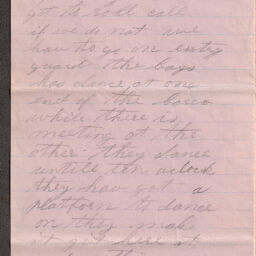 got to roll call
if we do not we
hav to go on entry
guard the boys
has dance at one
end of the
while there is
meeting at the
other they dance
untill ten oclock
they hav got a
platform to dance
on they mak
it